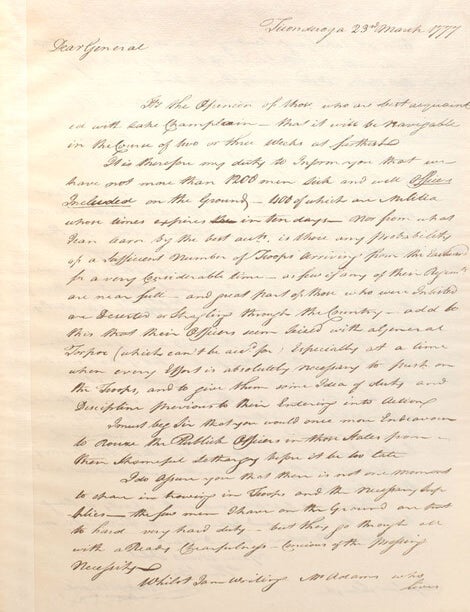 Ticonderoga 23rd March 1777
Dear General
It's the Openion of those who are best acquaint
ed with Lake Champlain – that it will be Navigable
in the Course of two or three weeks at furthest
It is therefore my duty to Inform you that we
have not more than 1200 men Sick and well Officers
Included on the Ground – 400 of which are Militia
whose times expires in ten days – Nor from what
I can learn by the best acts. is there any Probability
of a Sufficient Number of Troops Arriving from the Eastward
for a very Considerable time – as few if any of their Regimts
are near full – and great part of those who were Inlisted
are Deserted or Stragling through the Country – add to
this that their Officers seem Seized with a General
Torpor (which can't be acd. for) Especially at a time
when every Effort is absolutely necessary to push on
the Troops, and to give them some Idea of duty and
Discipline previous to their Entering into Action
I must beg Sir that you would once more Endeavour
to Rouse the Publick Officers in those States from –
their Shameful Lethargy before it be too late
I do Assure you that there is not one moment
to spare in bringing in Troops and the Necessary Sup
plies – the few men I have on the Ground are put
to hard very hard duty – but they go through all
with a Ready Chearfulness – Concious of the pressing
Necessity
Whilst I am Writing Mr Adams who
lives